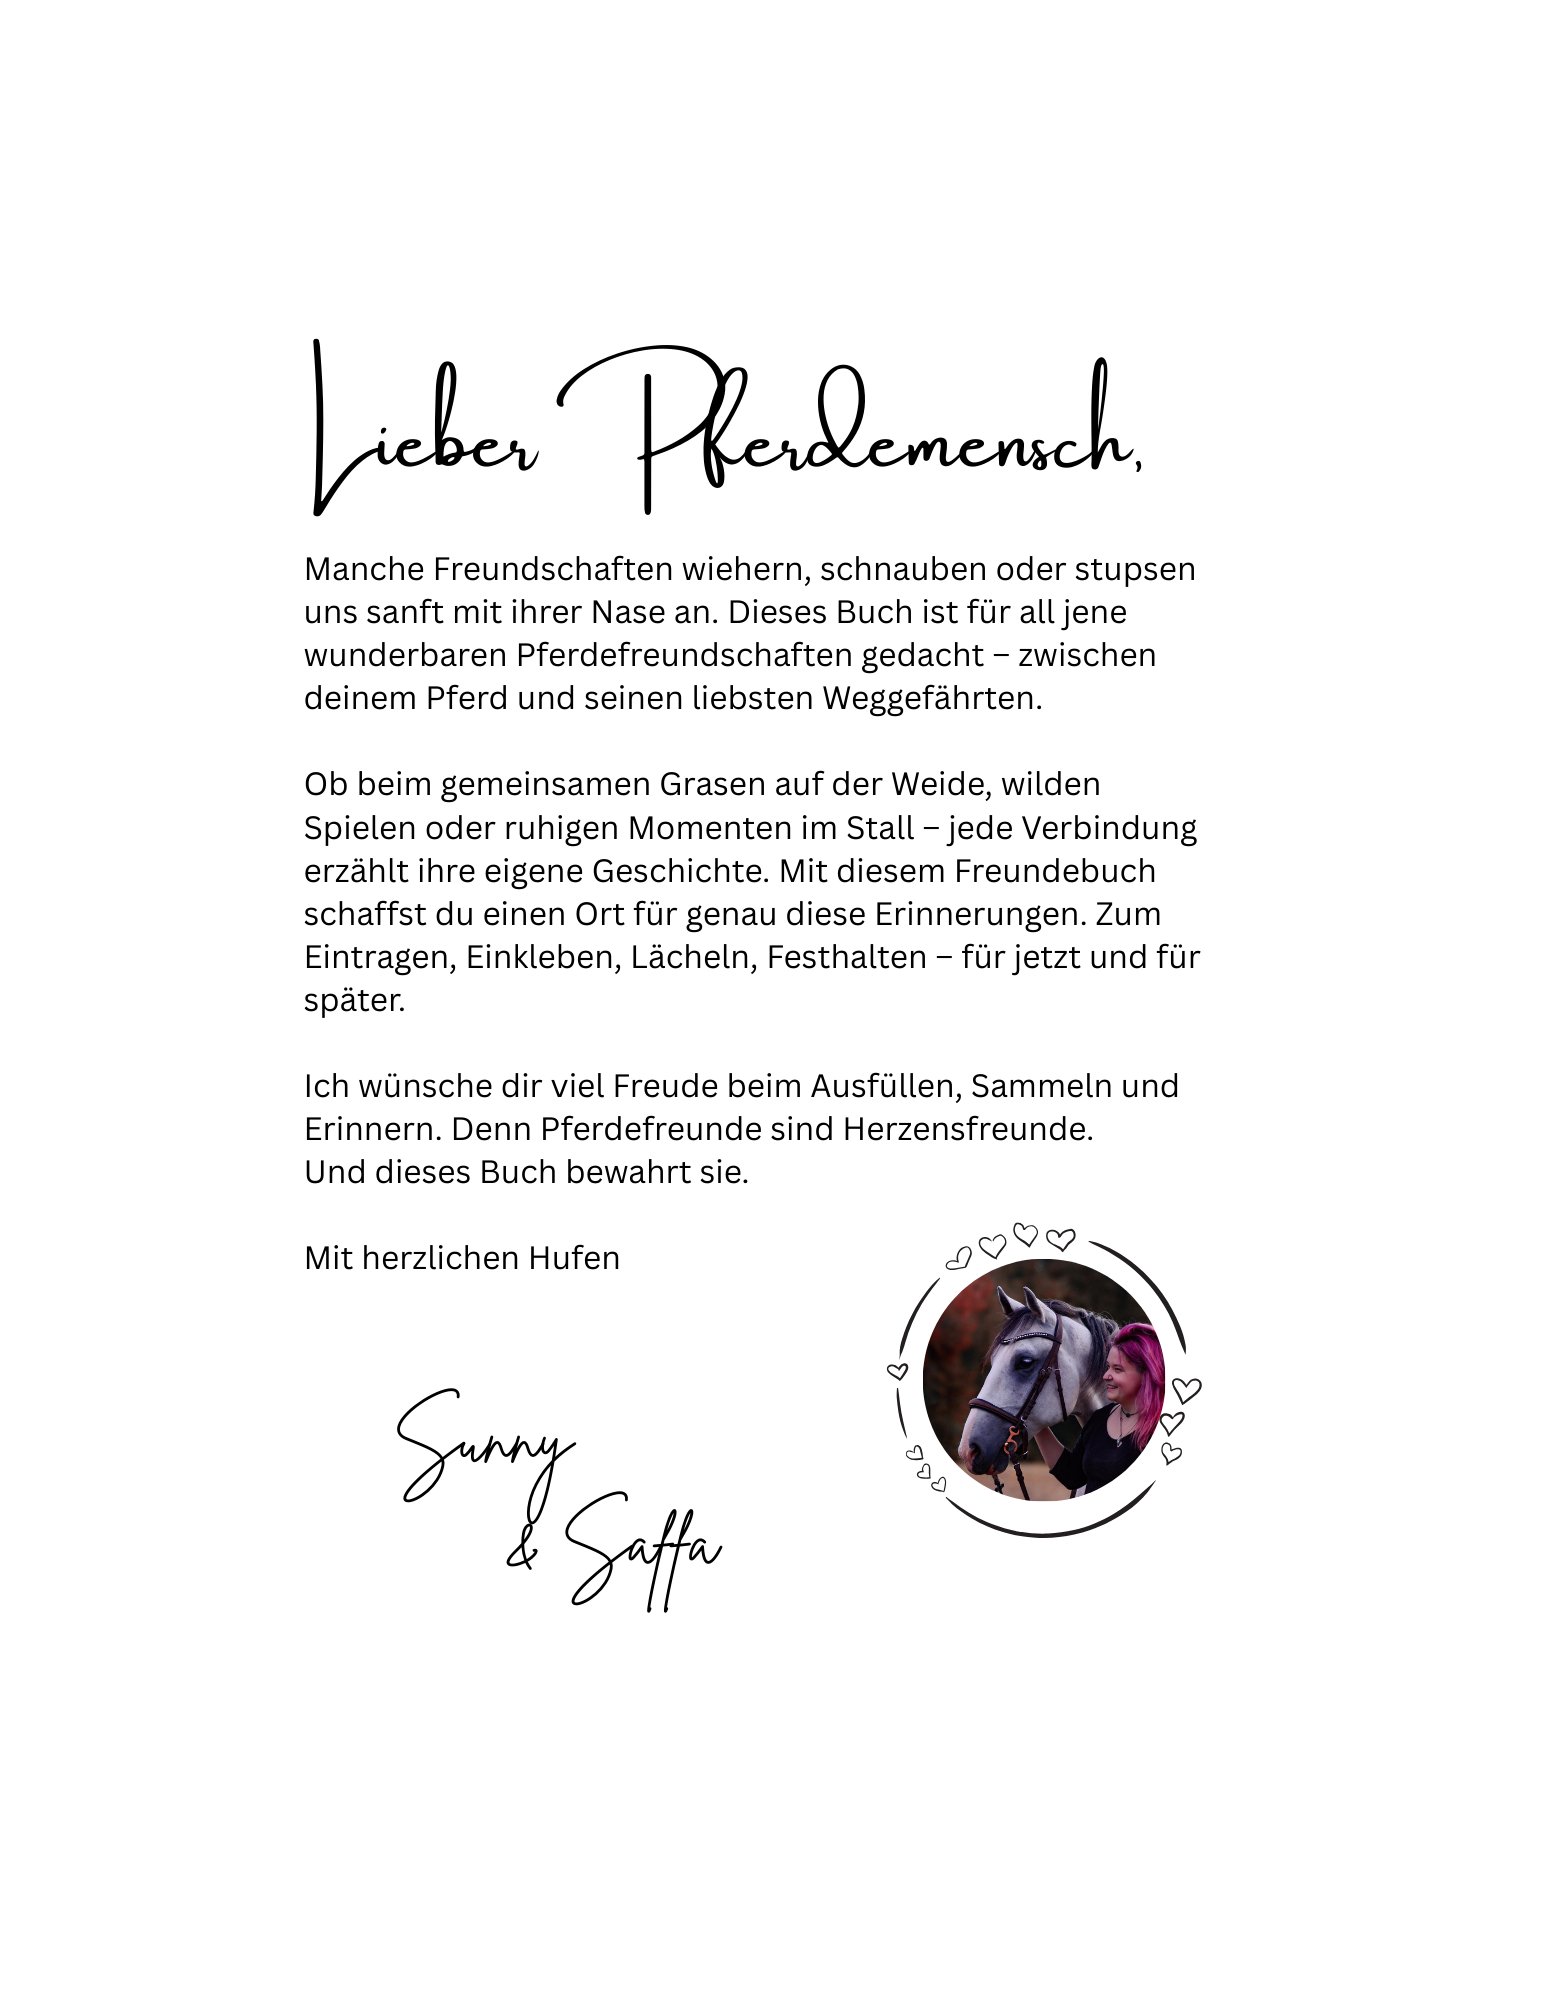 Lieber Pferdemensch,
Manche Freundschaften wiehern, schnauben oder stupsen
uns sanft mit ihrer Nase an. Dieses Buch ist für all jene
wunderbaren Pferdefreundschaften gedacht – zwischen
deinem Pferd und seinen liebsten Weggefährten.
Ob beim gemeinsamen Grasen auf der Weide, wilden
Spielen oder ruhigen Momenten im Stall – jede Verbindung
erzählt ihre eigene Geschichte. Mit diesem Freundebuch
schaffst du einen Ort für genau diese Erinnerungen. Zum
Eintragen, Einkleben, Lächeln, Festhalten – für jetzt und für
später.
Ich wünsche dir viel Freude beim Ausfüllen, Sammeln und
Erinnern. Denn Pferdefreunde sind Herzensfreunde.
Und dieses Buch bewahrt sie.
Mit herzlichen Hufen
Sunny
& Saffa